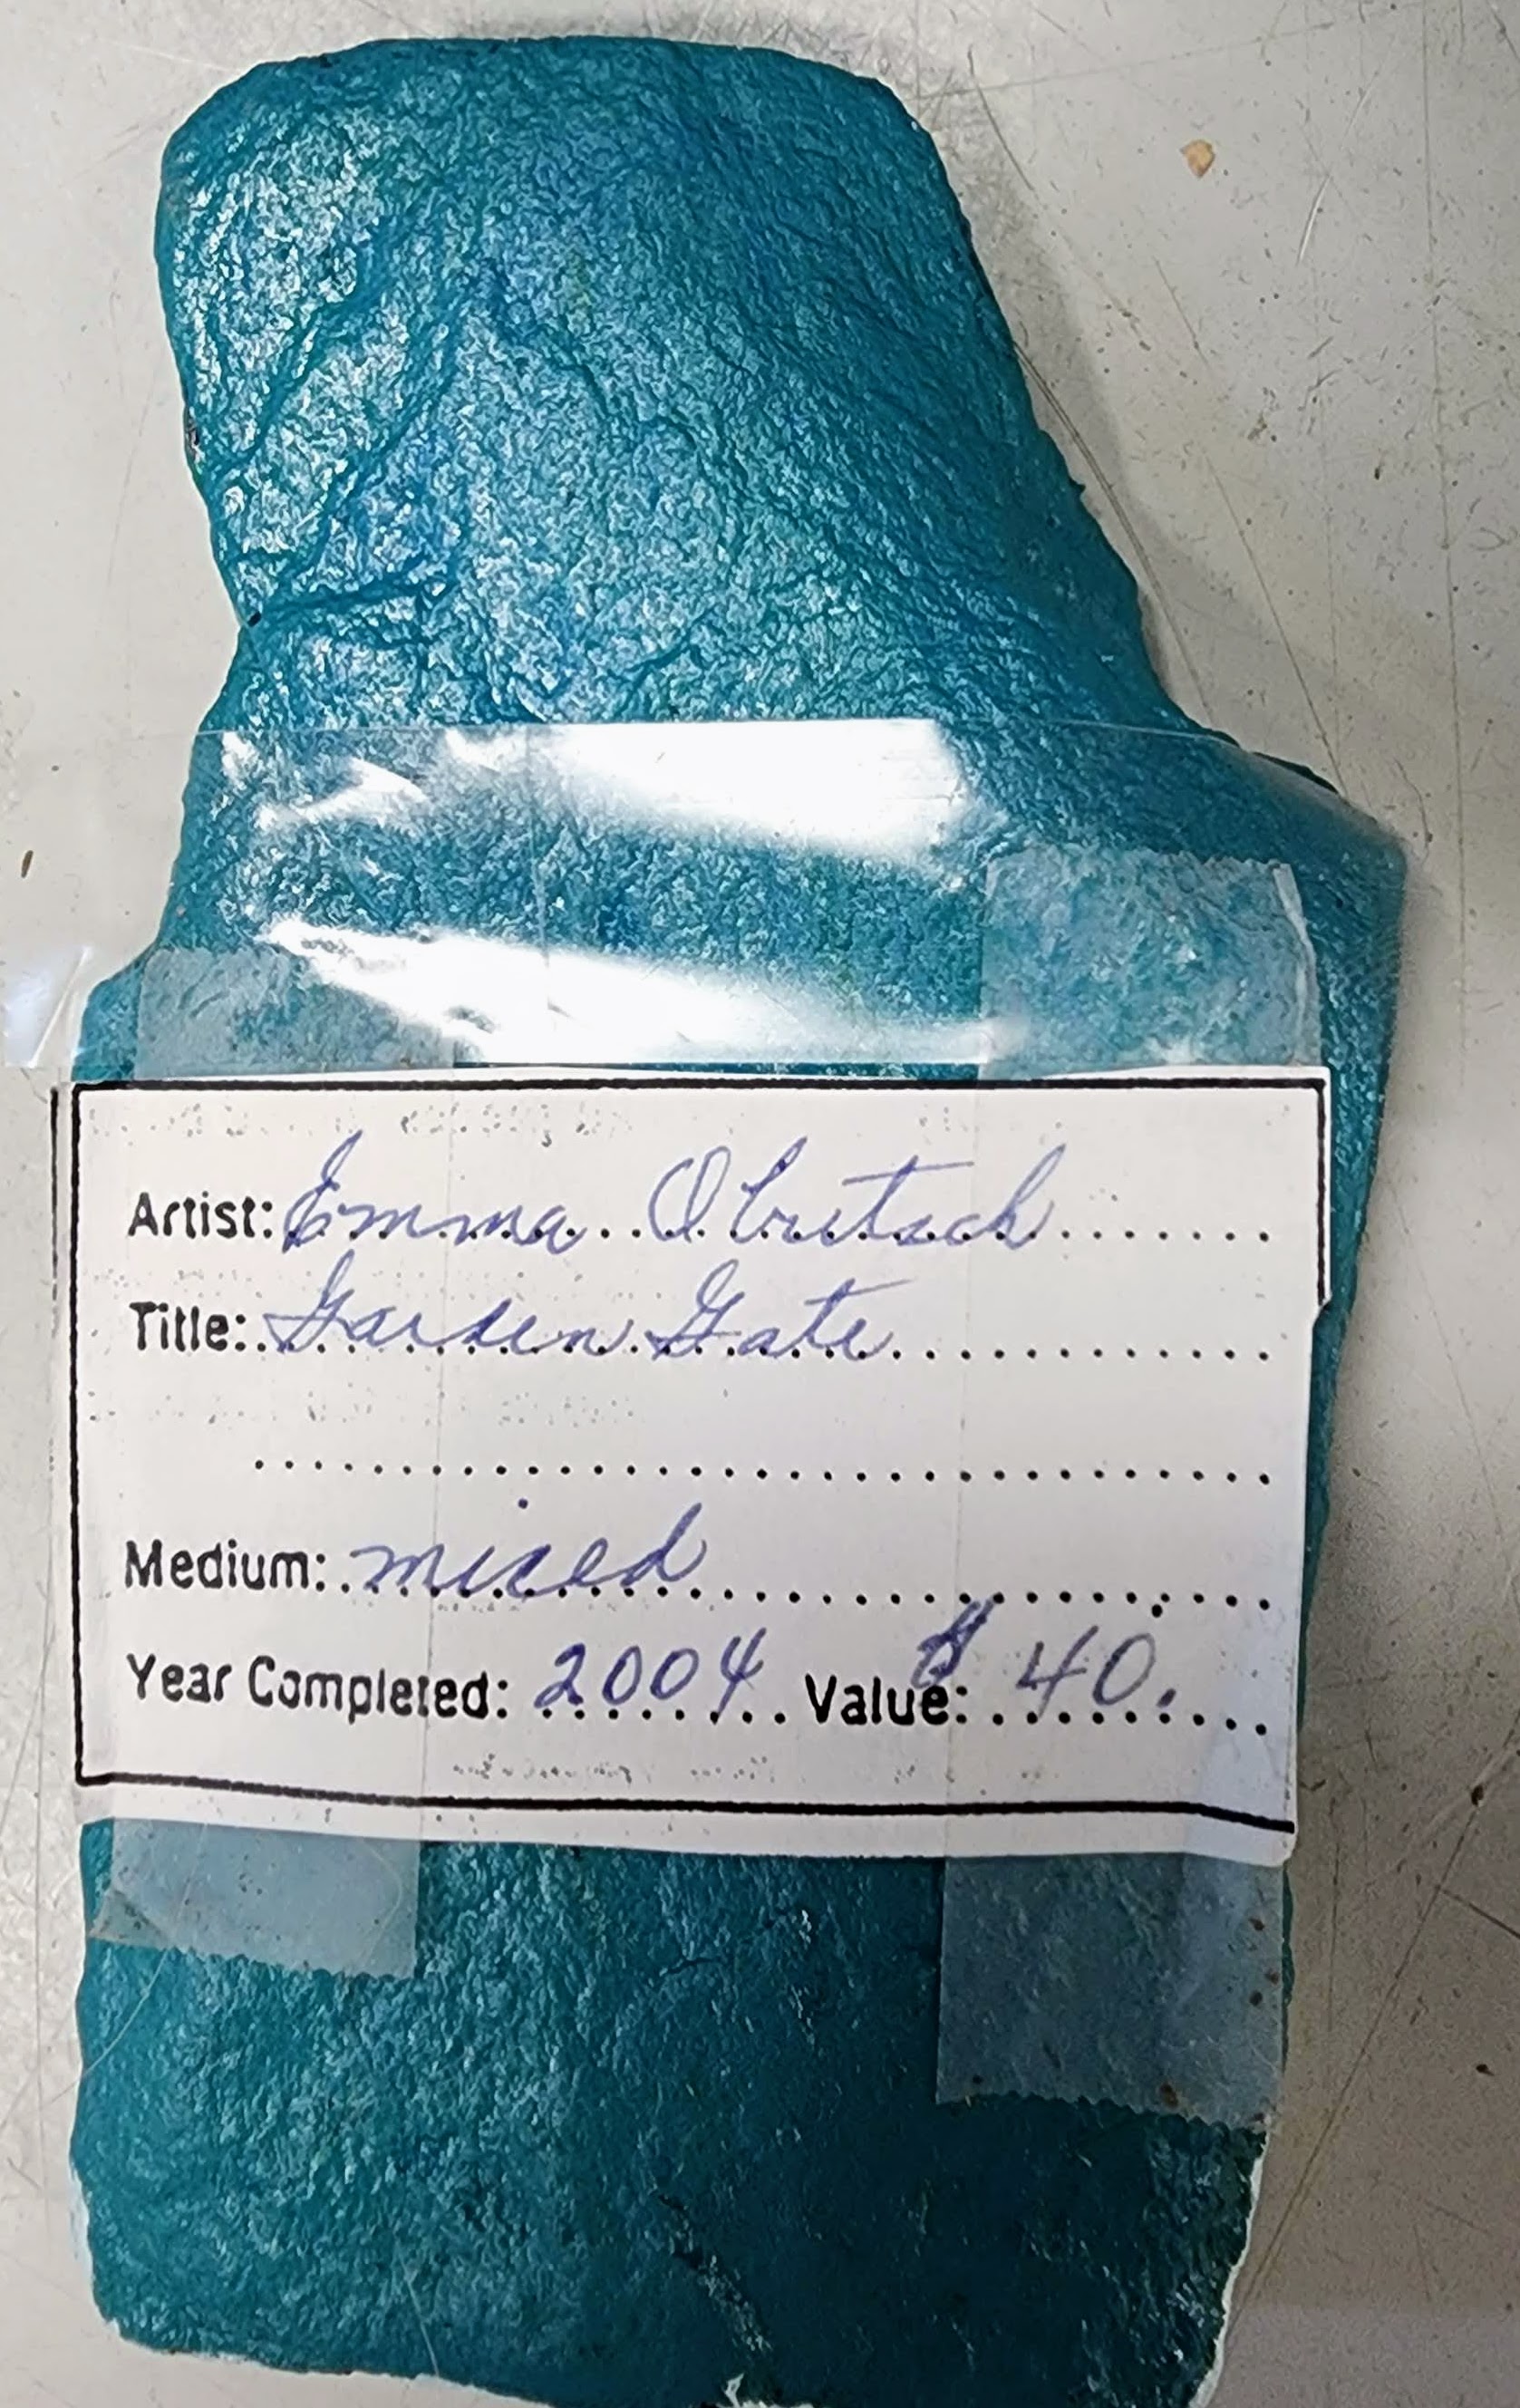 Artist: Emma Obritsch
Title: Garden Gate
Medium: mixed
Year Completed: 2004 Value: $40.